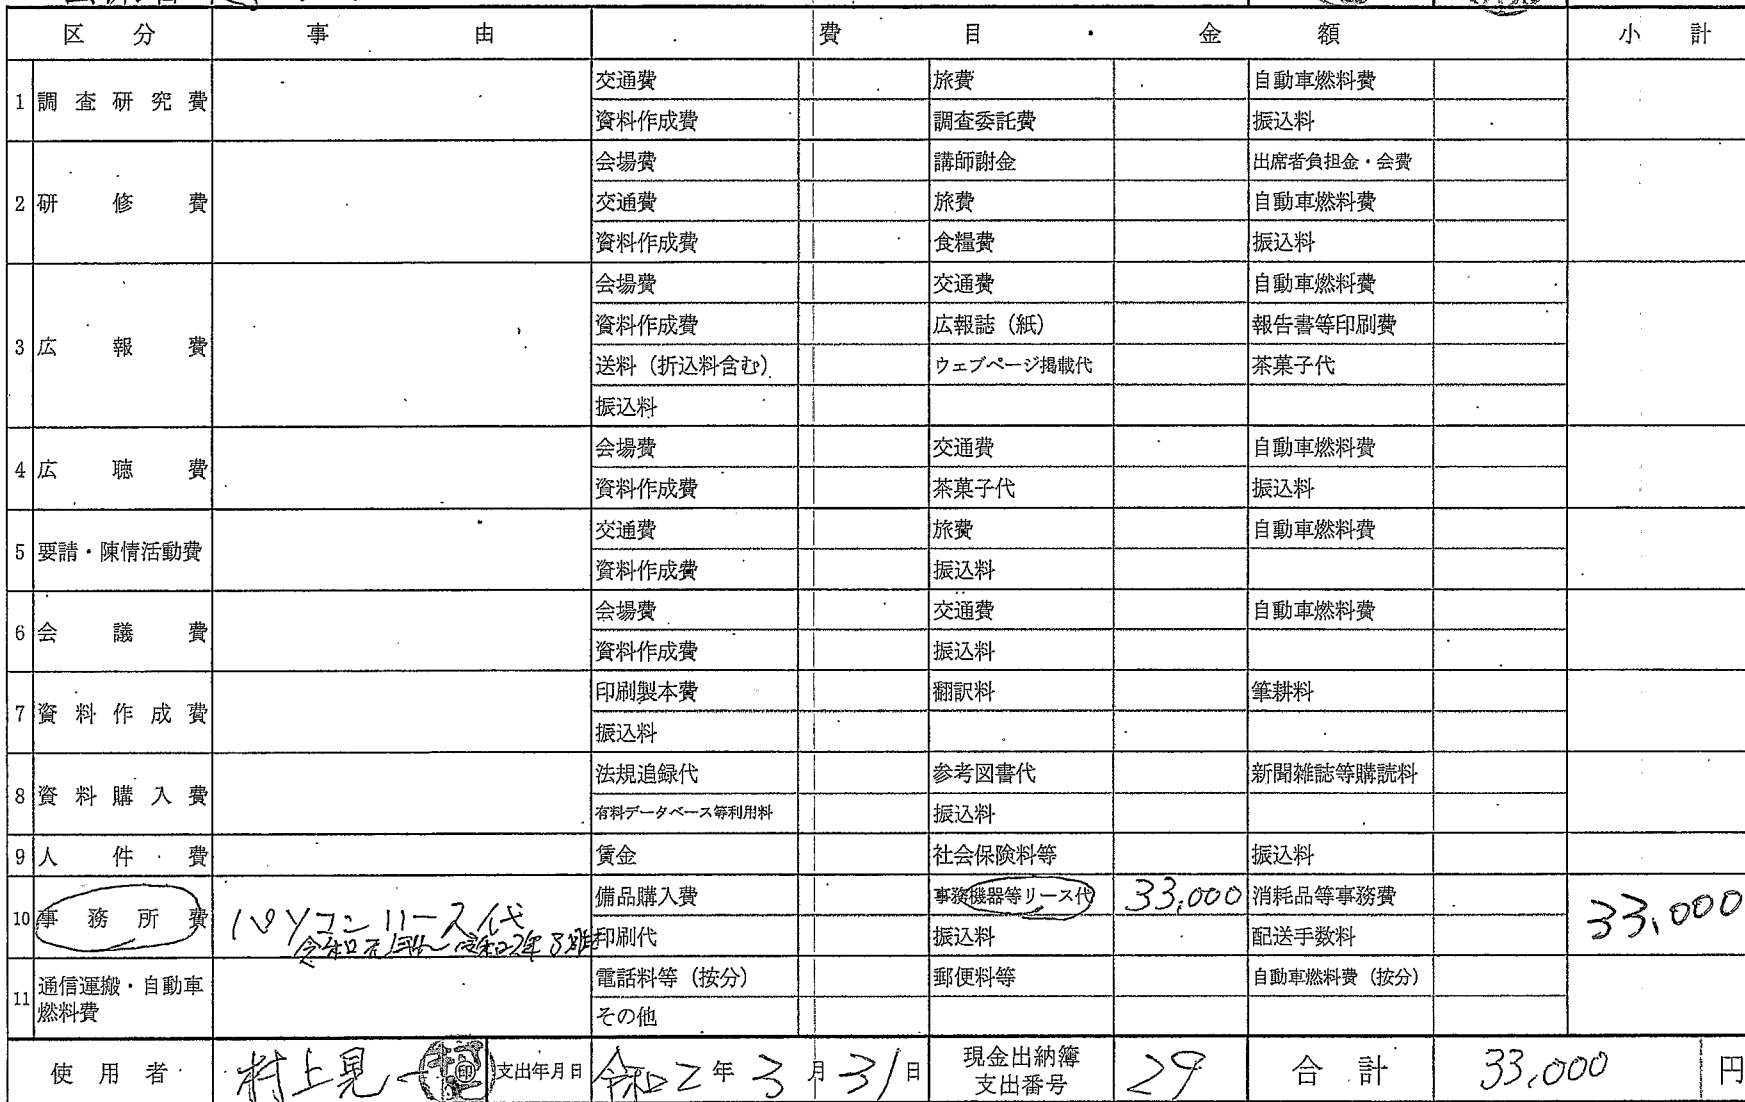 区 分 事 由 費 目 ・ 金 額 小 計
1 調査研究費 交通費 旅費 自動車燃料費
資料作成費 調査委託費 振込料
2 研修費 会場費 講師謝金 出席者負担金・会費
交通費 旅費 自動車燃料費
資料作成費 食糧費 振込料
3 広報費 会場費 交通費 自動車燃料費
資料作成費 広報誌(紙) 報告書等印刷費
送料(折込料含む) ウェブページ掲載代 茶菓子代
振込料
4 広聴費 会場費 交通費 自動車燃料費
資料作成費 茶菓子代 振込料
5 要請・陳情活動費 交通費 旅費 自動車燃料費
資料作成費 振込料
6 会議費 会場費 交通費 自動車燃料費
資料作成費 振込料
7 資料作成費 印刷製本費 翻訳料 筆耕料
振込料
8 資料購入費 法規追録代 参考図書代 新聞雑誌等購読料
有料データベース等利用料 振込料
9 人件費 賃金 社会保険料等 振込料
10 事務所費 パソコンリース代 備品購入費 事務機器等リース代 33,000 消耗品等事務費 33,000
印刷代 振込料 配送手数料
11 通信運搬・自動車燃料費 電話料等(按分) 郵便料等 自動車燃料費(按分)
その他
使用者 村上晃一 支出年月日 令和2年3月31日 現金出納簿支出番号 29 合計 33,000 円